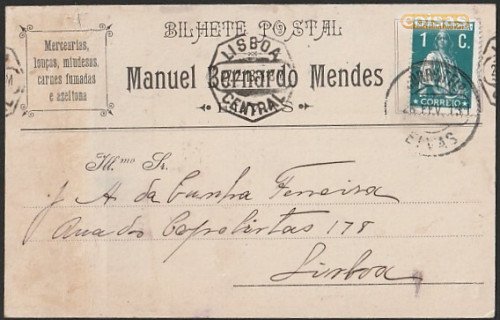 coisas
BILHETE POSTAL
Mercearias,
louças, miudesas,
carnes fumadas
e azeitona
Manuel Bernardo Mendes
LISBOA
CENTRAL
1 C.
CORREIO
ELVAS
Ill.mo Sr.
J A da Cunha Ferreira
Rua dos Capelistas 178
Lisboa